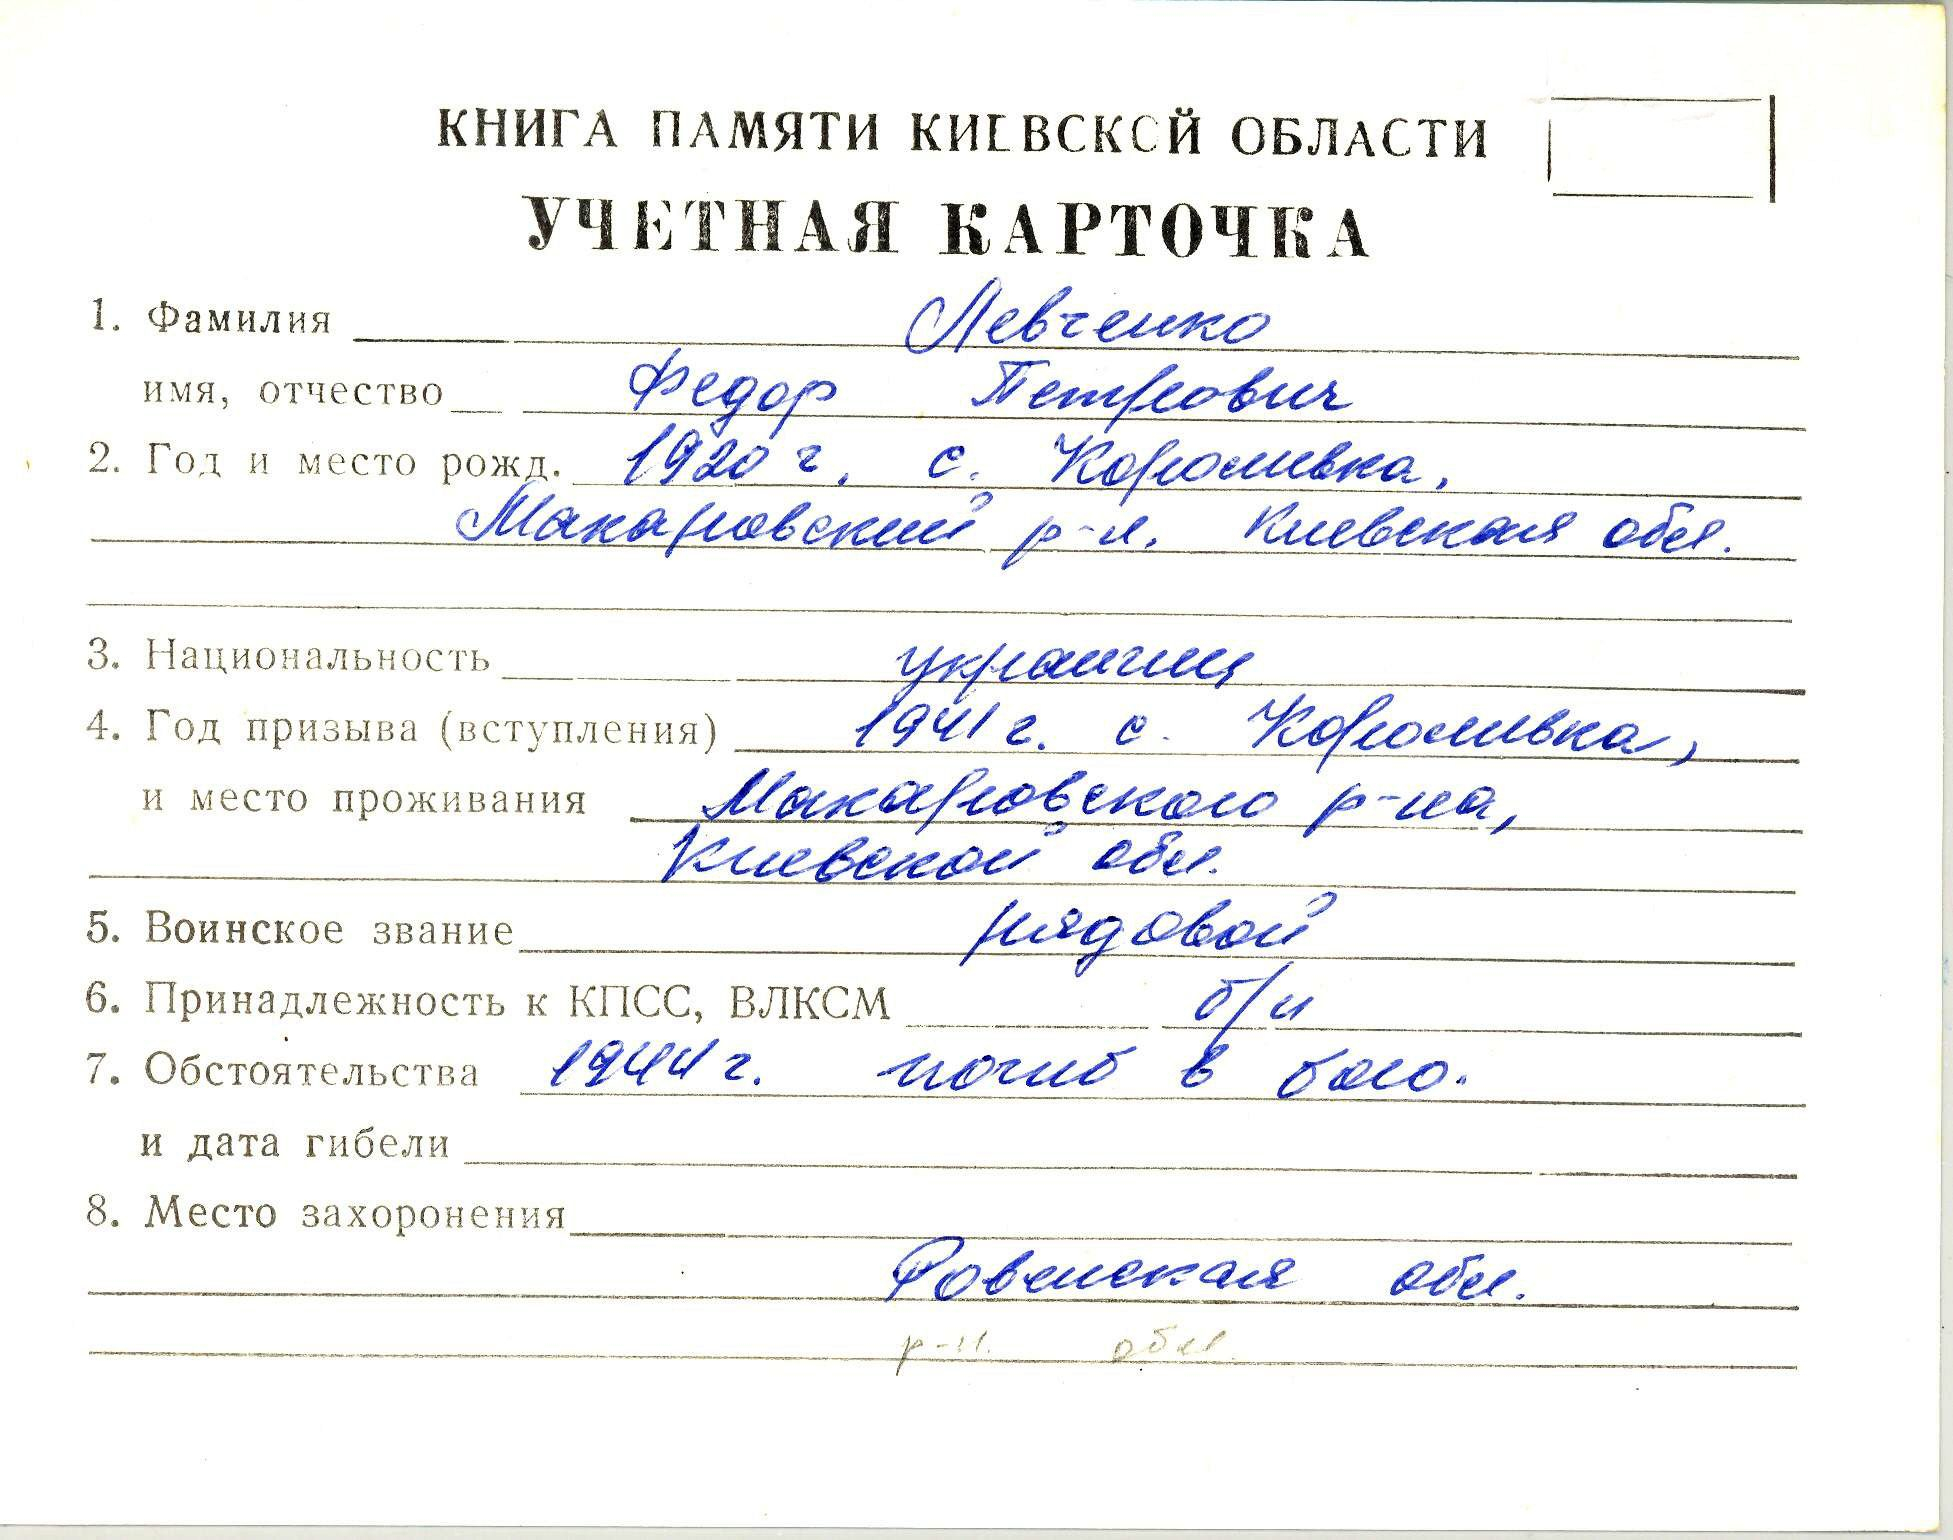 КНИГА ПАМЯТИ КИЕВСКОЙ ОБЛАСТИ
УЧЕТНАЯ КАРТОЧКА
1. Фамилия Левченко
имя, отчество Федор Петрович
2. Год и место рожд. 1920 г. с. Короливка,
Макаровский р-н. Киевская обл.
3. Национальность украинец
4. Год призыва (вступления) 1941 г. с. Короливка,
и место проживания Макаровского р-на,
Киевской обл.
5. Воинское звание рядовой
6. Принадлежность к КПСС, ВЛКСМ б/п
7. Обстоятельства 1944 г. погиб в бою.
и дата гибели
8. Место захоронения
Ровенская обл.
р-н. обл.